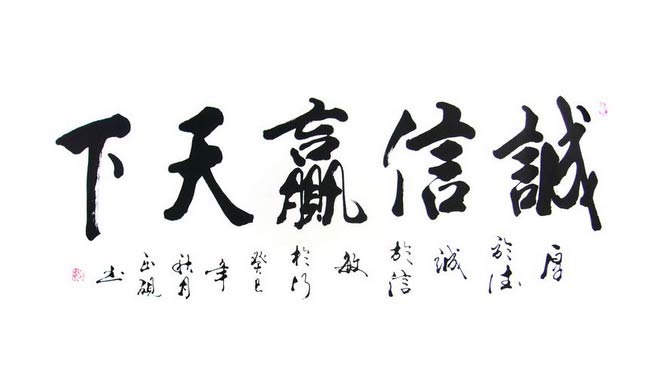 誠信贏天下
厚於德
誠於信
敏於行
癸巳年秋月
正硯书